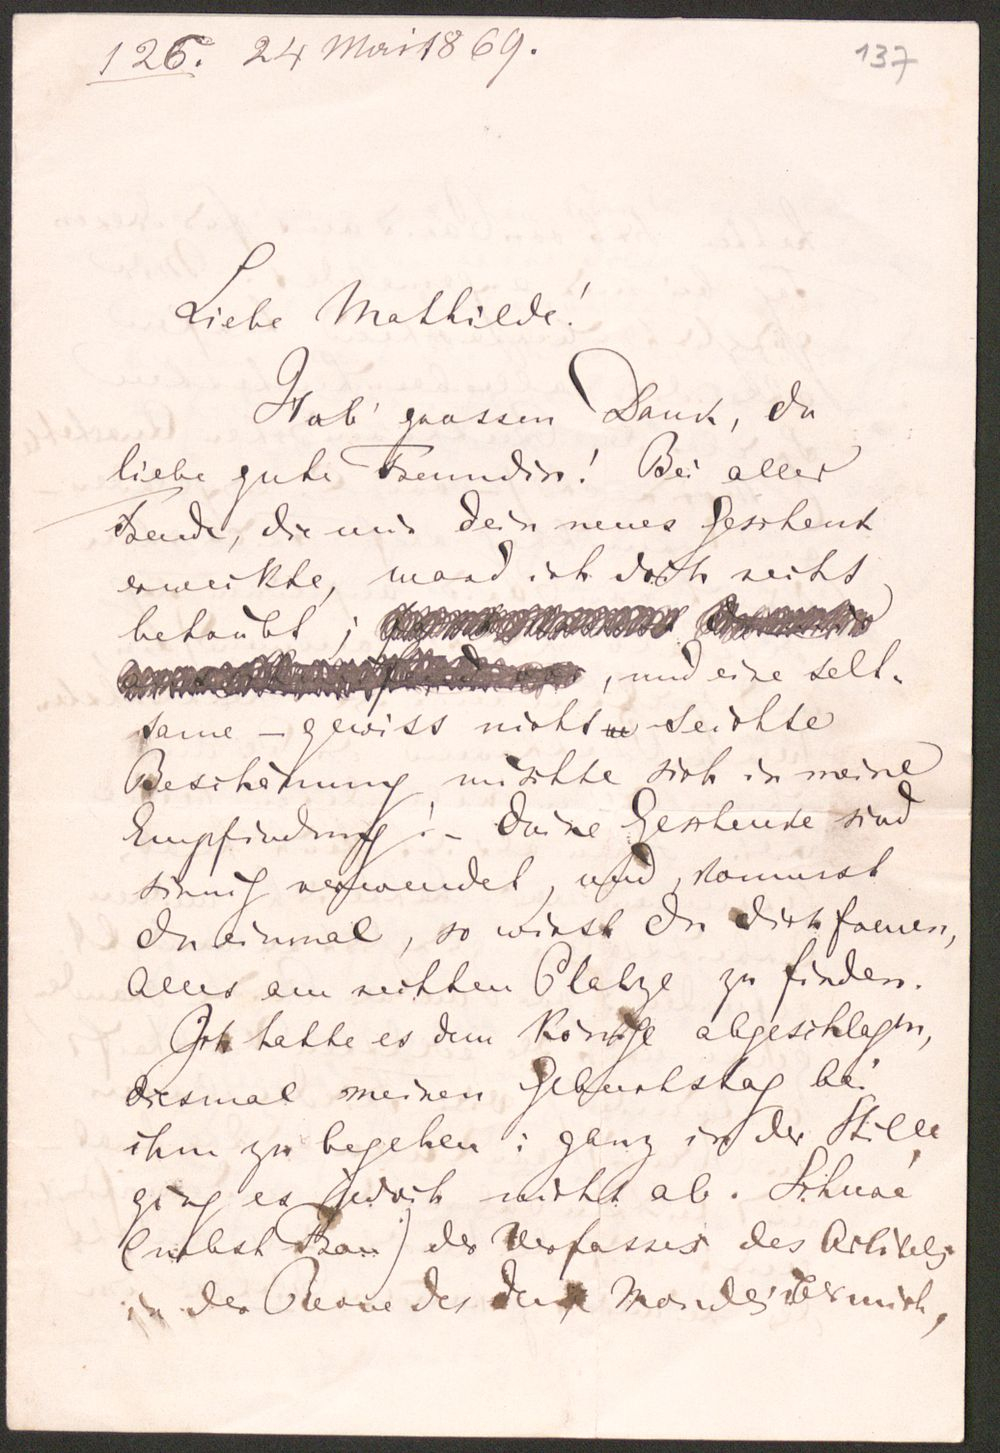 126. 24 Mai 1869.
137
Liebe Mathilde!
Hab' grossen Dank, du
liebe gute Freundin! Bei aller
Freude, die mir dein neues Geschenk
erweckte, ward ich doch recht
betrübt ;
, und eine selt-
same – gewiss nicht seichte
Beschämung mischte sich in meine
Empfindung! – Deine Geschenke sind
sinnig verwendet, und, kommst
du einmal, so wirst du dich freuen,
Alles am rechten Platze zu finden.
Ich hatte es dem Könige abgeschlagen,
diesmal meinen Geburtstag bei
ihm zu begehen: ganz in der Stille
ging es jedoch nicht ab. Schuré
(nebst Frau) der Verfasser des Artikels
in der Revue des deux Mondes über mich,